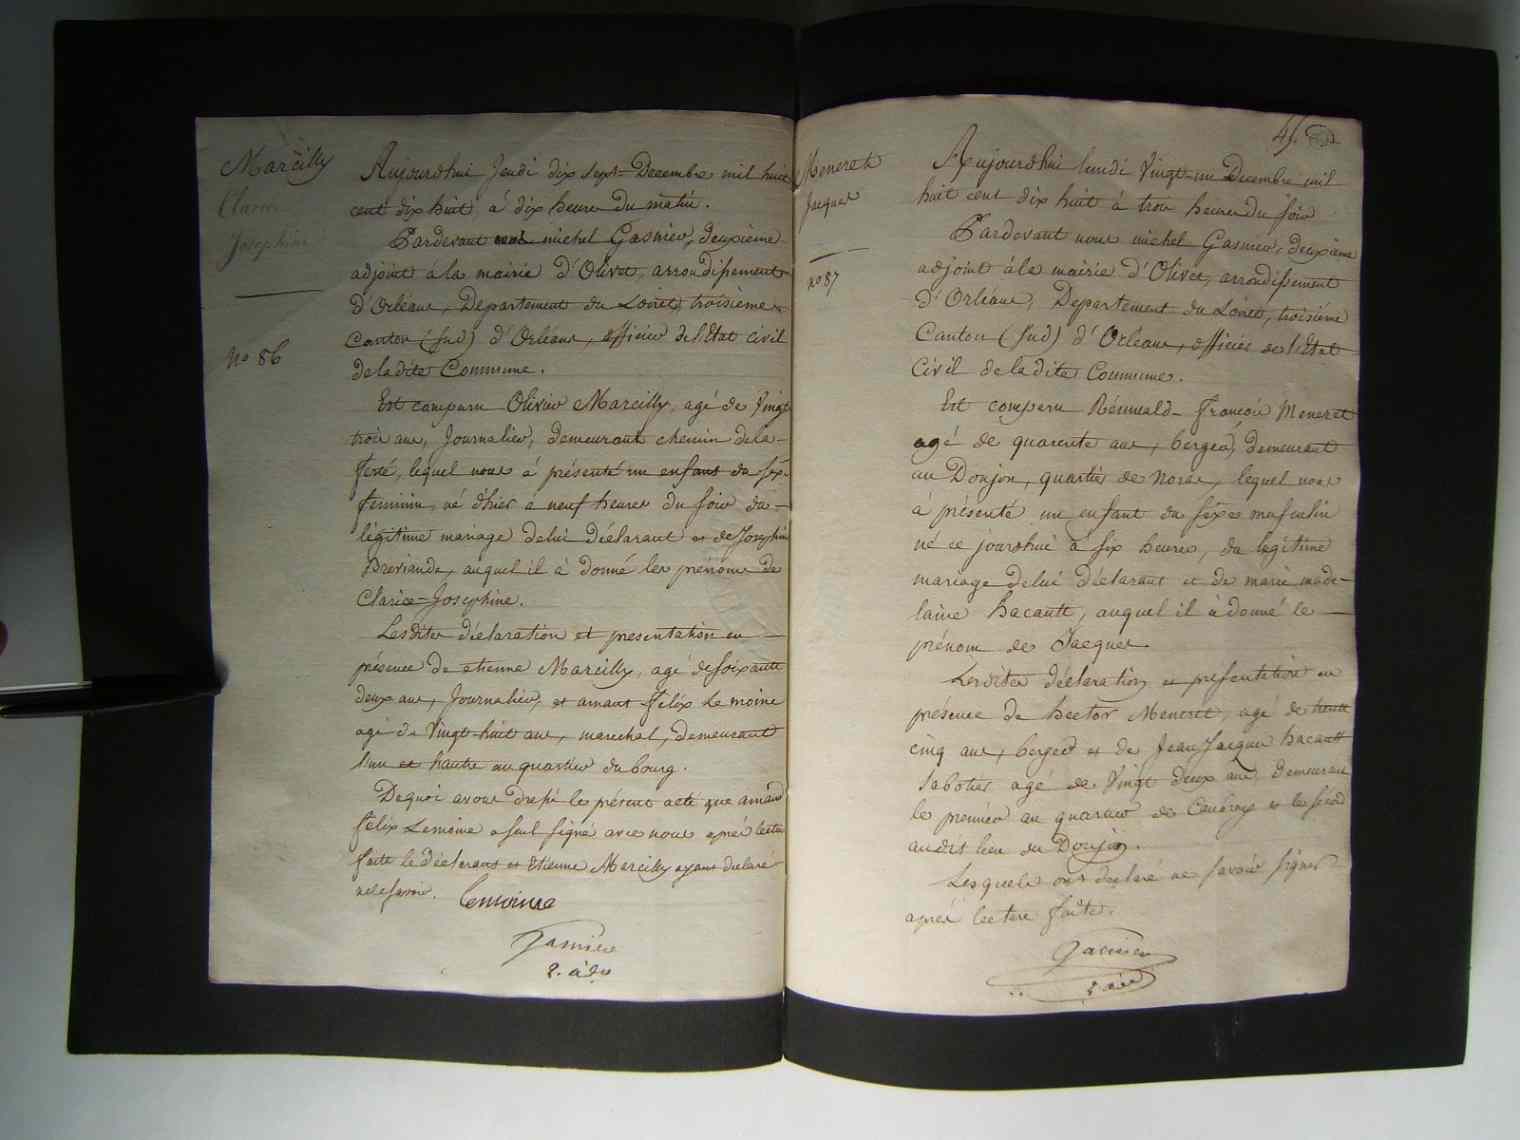 Marcilly
Clarice
Josephine
no 86
Aujourdhui Jeudi dix sept Decembre mil huit
cent dix huit à dix heure du matin.
Pardevant nous michel Gasnier, deuxieme
adjoint à la mairie d'Olivet, arrondissement
d'Orléans, Departement du Loiret, troisième
Canton (sud) d'Orléans, officier de l'Etat civil
de la dite Commune.
Est comparu Olivier Marcilly, agé de Vingt
trois ans, Journalier, demeurant chemin de la
ferté, lequel nous à présenté un enfant du séxe
feminin, né d'hier à neuf heures du soir du
légitime mariage de lui déclarant et de Josephine
auquel il à donné les prénoms de
Clarice-Josephine.
Lesdites déclaration et presentation en
présence de etienne Marcilly, agé de soixante
deux ans, Journalier, et amant félix Le moine
agé de Vingt-huit ans, marechal, demeurant
l'un et l'autre au quartier du bourg.
De quoi avons dressé le présent acte que amand
félix Lemoine a seul signé avec nous après lecture
faite le déclarant et Etienne Marcilly ayant declaré
ne le savoir. Lemoine
Gasnier
2. adj
45.
Meneret
Jacques
no 87
Aujourdhui lundi Vingt-un Decembre mil
huit cent dix huit à trois heures du soir
Pardevant nous michel Gasnier, deuxieme
adjoint à la mairie d'Olivet, arrondissement
d'Orléans, Departement du Loiret, troisième
Canton (sud) d'Orléans, officier de l'Etat
Civil de la dite Commune.
Est comparu françois Meneret
agé de quarente ans, berger, demeurant
au Donjon, quartier de lequel nous
à présenté un enfant du séxe masculin
né ce jourdhui à six heures, du légitime
mariage de lui déclarant et de marie made-
laine hacault, auquel il à donné le
prénom de Jacques
Lesdites déclaration et présentation en
présence de hector Meneret, agé de trente
cinq ans, berger et de Jean Jacques hacault
Sabotier agé de Vingt deux ans, demeurant
le premier au quartier de et le second
audit lieu du Donjon.
Lesquels ont declaré ne savoir signer
après lecture faite.
Gasnier
2 adj